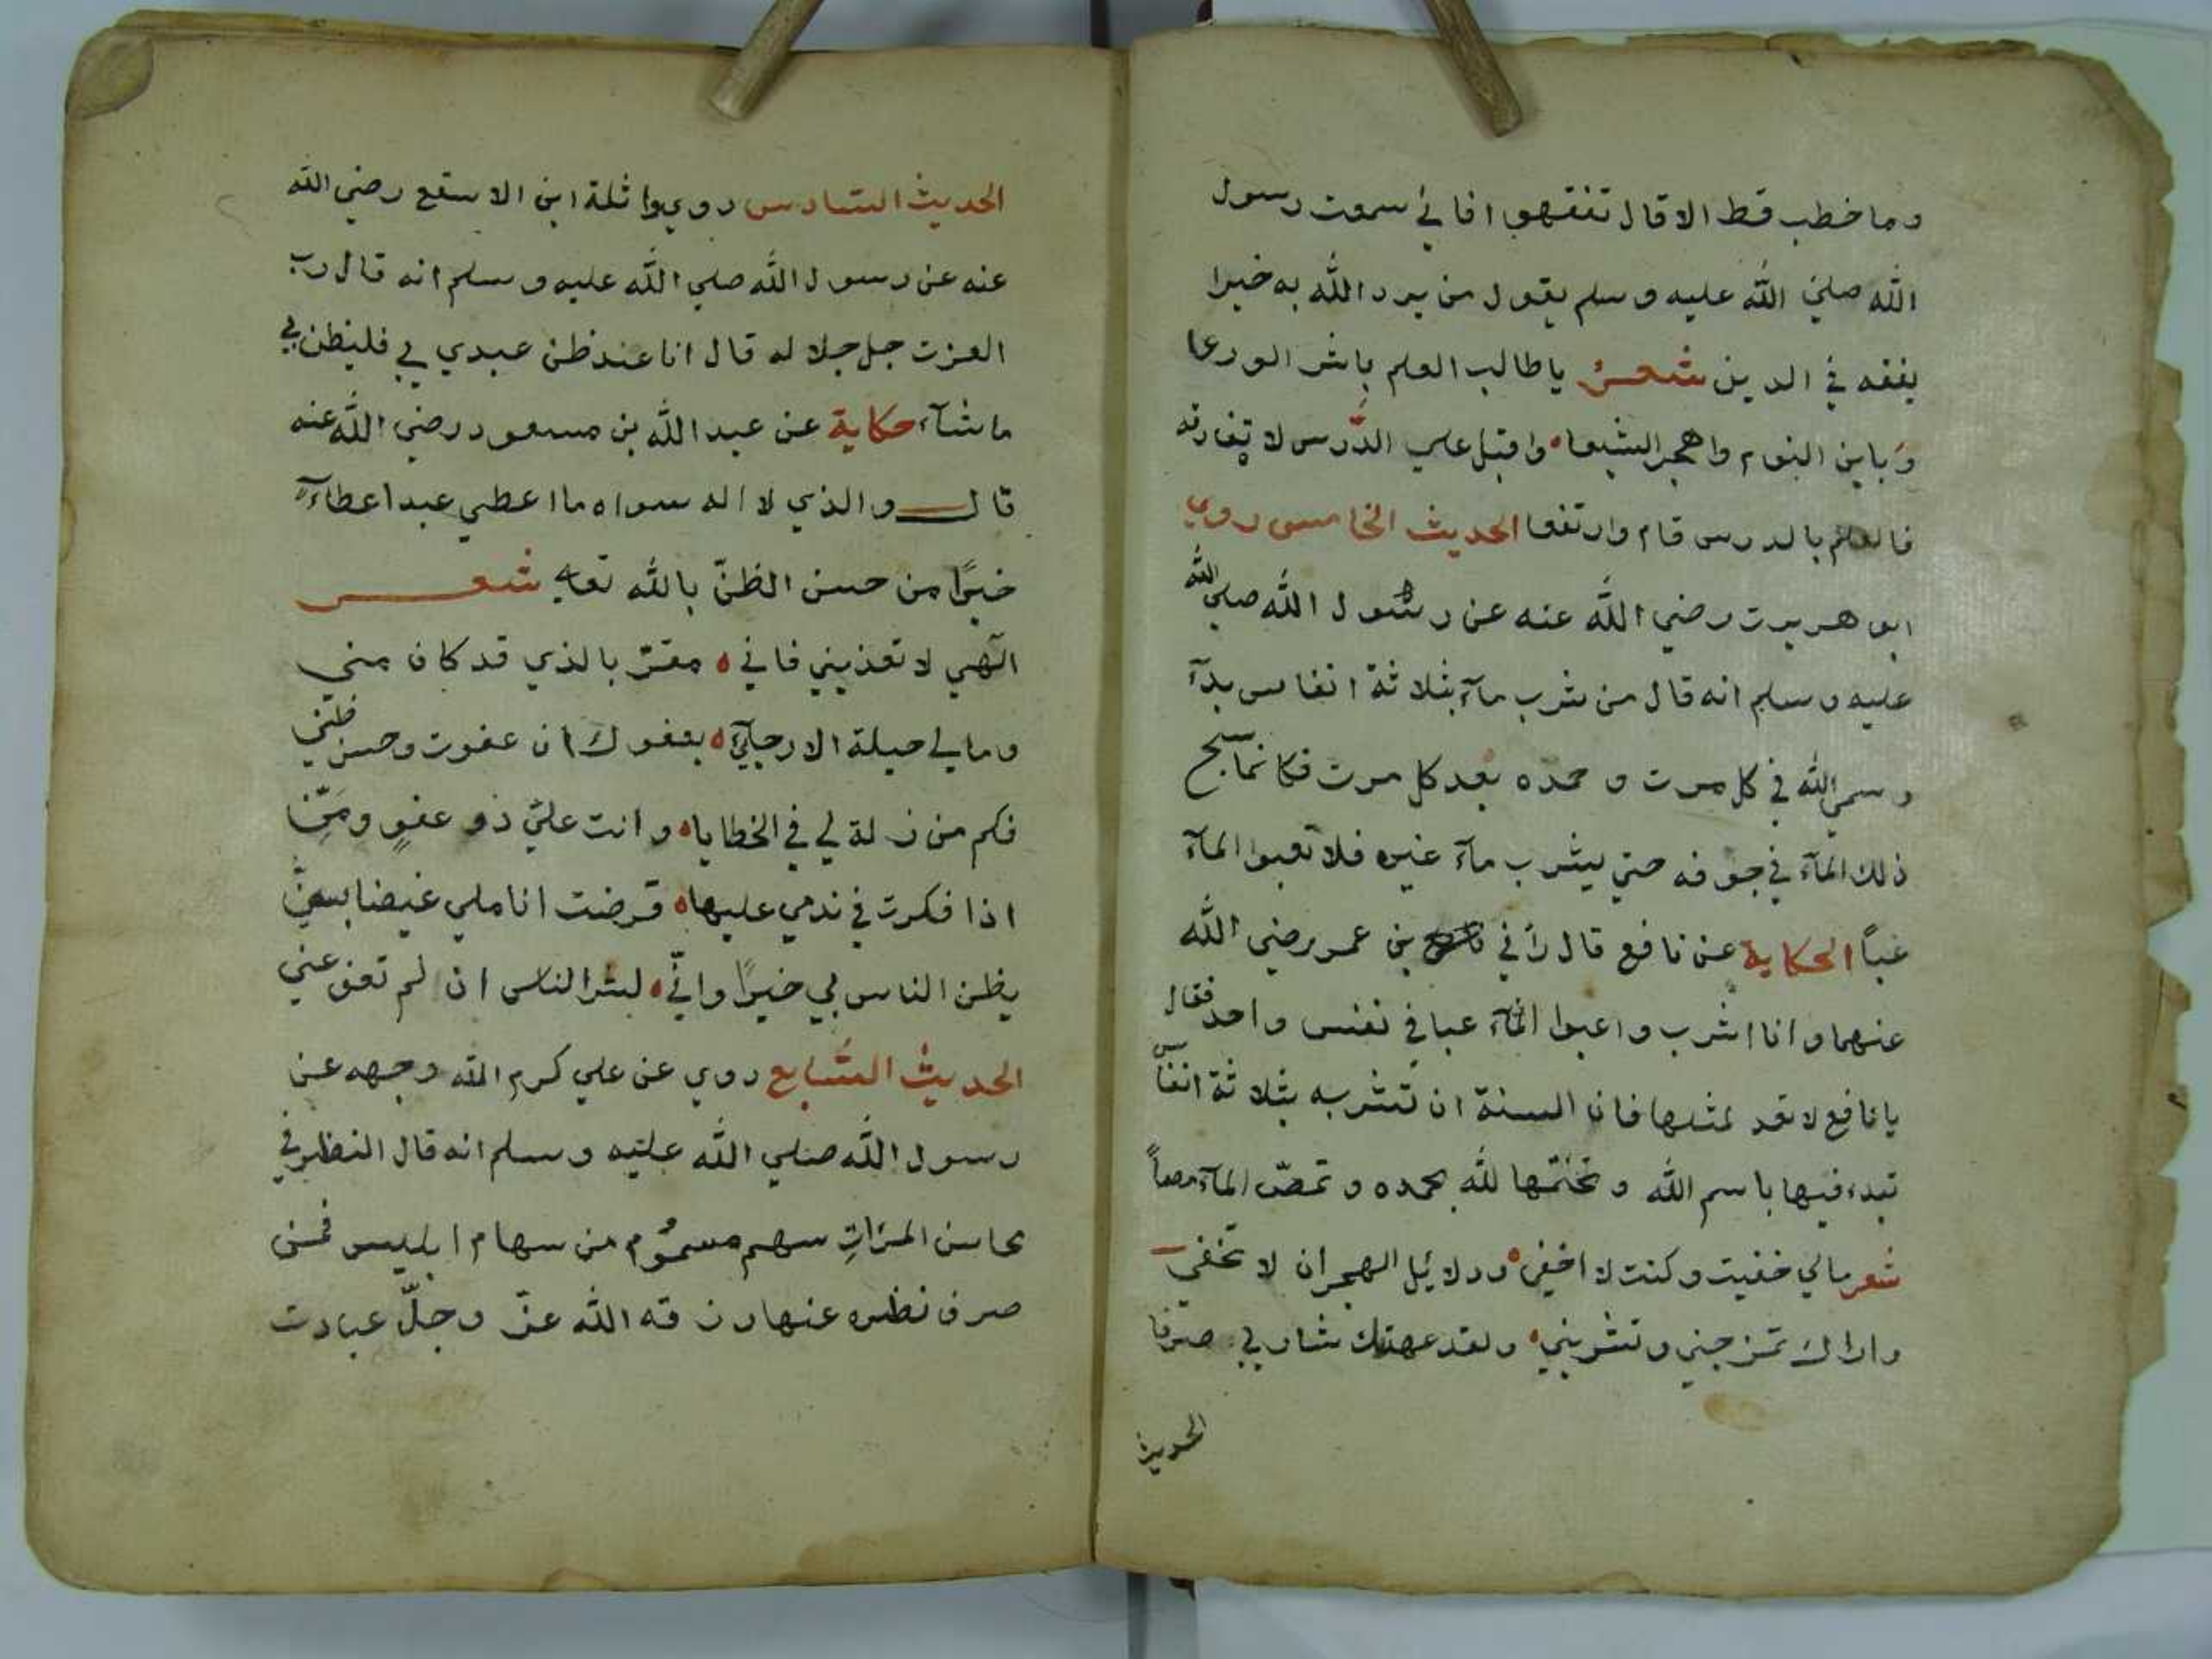 وما خطب قط الا قال تفقهوا فاني سمعت رسول
الله صلي الله عليه وسلم يقول من يرد الله به خيرا
يفقه في الدين شعر يا طالب العلم باشر الورعا
وباين النوم واهجر الشبعا واقبل علي الدّرس لا تفارقه
فالعلم بالدرس قام وارتفعا الحديث الخامس روي
ابو هريرت رضي الله عنه عن رسول الله صلي الله
عليه وسلم انه قال من شرب مآء بثلاثة انفاس بدآ
وسمي الله في كل مرت و حمده بعد كل مرت فكانما يسبح
ذلك المآء في جوفه حتي يشرب مآء غيره فلا تعبوا المآء
عبّا الحكاية عن نافع قال رأني بن عمر رضي الله
عنهما وانا اشرب واعبوا المآء عبا في نفس واحد فقال
يا نافع لا تعد لمثلها فان السنة ان تشربه بثلاثة انفاس
تبدء فيها باسم الله وتختمها لله بحمده وتمصّ المآء مصاً
شعر مالي خفيت وكنت لا اخفي ودلائل الهجران لا تخفي
واراك تمزجني وتشربني ولقد عهدتك شاربي صرفا
الحديث
الحديث السّادس روي واثلة ابن الاسقع رضي الله
عنه عن رسول الله صلي الله عليه وسلم انه قال رب
العزت جل جلاله قال انا عند ظن عبدي بي فليظن بي
ما شآء حكاية عن عبد الله بن مسعود رضي الله عنه
قال والذي لا اله سواه ما اعطي عبدا عطآء
خيرًا من حسن الظنّ بالله تعالي شعر
الٓهي لا تعذبني فاني مقرّ بالذي قد كان مني
وما لي حيلة الا رجآئي بعفوك ان عفوت وحسن ظني
فكم من زلة لي في الخطايا وانت عليّ ذو عفوٍ ومَنِّ
اذا فكرت في ندمي عليها قرضت اناملي غيضا بسنّي
يظن الناس بي خيرًا وانّي لشر الناس ان لم تعف عني
الحديث السّابع روي عن علي كرم الله وجهه عن
رسول الله صلي الله عليه وسلم انه قال النظر في
محاسن المرَاتِ سهم مسموُم من سهام ابليس فمن
صرف نظره عنها رزقه الله عزّ وجلّ عبادت